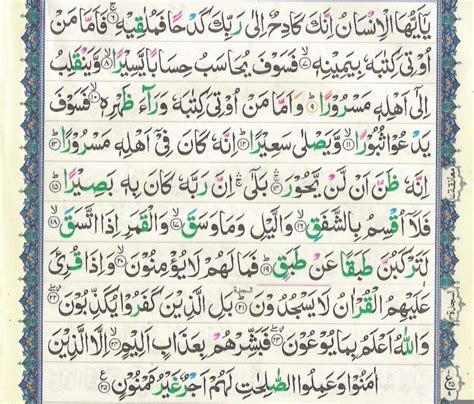 يٰۤاَيُّهَا الْاِنْسَانُ اِنَّكَ كَادِحٌ اِلٰى رَبِّكَ كَدْحًا فَمُلٰقِيْهِ ۚ‏﴿۶﴾ فَاَمَّا مَنْ
اُوْتِىَ كِتٰبَهٗ بِيَمِيْنِهٖ ۙ‏﴿۷﴾ فَسَوْفَ يُحَاسَبُ حِسَابًا يَّسِيْرًا ۙ‏﴿۸﴾ وَّيَنْقَلِبُ
اِلٰٓى اَهْلِهٖ مَسْرُوْرًا ؕ‏﴿۹﴾ وَاَمَّا مَنْ اُوْتِىَ كِتٰبَهٗ وَرَآءَ ظَهْرِهٖ ۙ‏﴿۱۰﴾ فَسَوْفَ
يَدْعُوْا ثُبُوْرًا ۙ‏﴿۱۱﴾ وَّيَصْلٰى سَعِيْرًا ؕ‏﴿۱۲﴾ اِنَّهٗ كَانَ فِىْۤ اَهْلِهٖ مَسْرُوْرًا ؕ‏﴿۱۳﴾
اِنَّهٗ ظَنَّ اَنْ لَّنْ يَّحُوْرَ ۛۚ‏﴿۱۴﴾ بَلٰٓى ۛۚ اِنَّ رَبَّهٗ كَانَ بِهٖ بَصِيْرًا ؕ‏﴿۱۵﴾
فَلَاۤ اُقْسِمُ بِالشَّفَقِ ۙ‏﴿۱۶﴾ وَالَّيْلِ وَمَا وَسَقَ ۙ‏﴿۱۷﴾ وَالْقَمَرِ اِذَا اتَّسَقَ ۙ‏﴿۱۸﴾
لَتَرْكَبُنَّ طَبَقًا عَنْ طَبَقٍ ؕ‏﴿۱۹﴾ فَمَا لَهُمْ لَا يُؤْمِنُوْنَ ۙ‏﴿۲۰﴾ وَاِذَا قُرِئَ
عَلَيْهِمُ الْقُرْاٰنُ لَا يَسْجُدُوْنَ ؕ‏﴿۲۱﴾ بَلِ الَّذِيْنَ كَفَرُوْا يُكَذِّبُوْنَ ۖ‏﴿۲۲﴾
وَاللّٰهُ اَعْلَمُ بِمَا يُوْعُوْنَ ۖ‏﴿۲۳﴾ فَبَشِّرْهُمْ بِعَذَابٍ اَلِيْمٍ ۙ‏﴿۲۴﴾ اِلَّا الَّذِيْنَ
اٰمَنُوْا وَعَمِلُوا الصّٰلِحٰتِ لَهُمْ اَجْرٌ غَيْرُ مَمْنُوْنٍ ‏﴿۲۵﴾